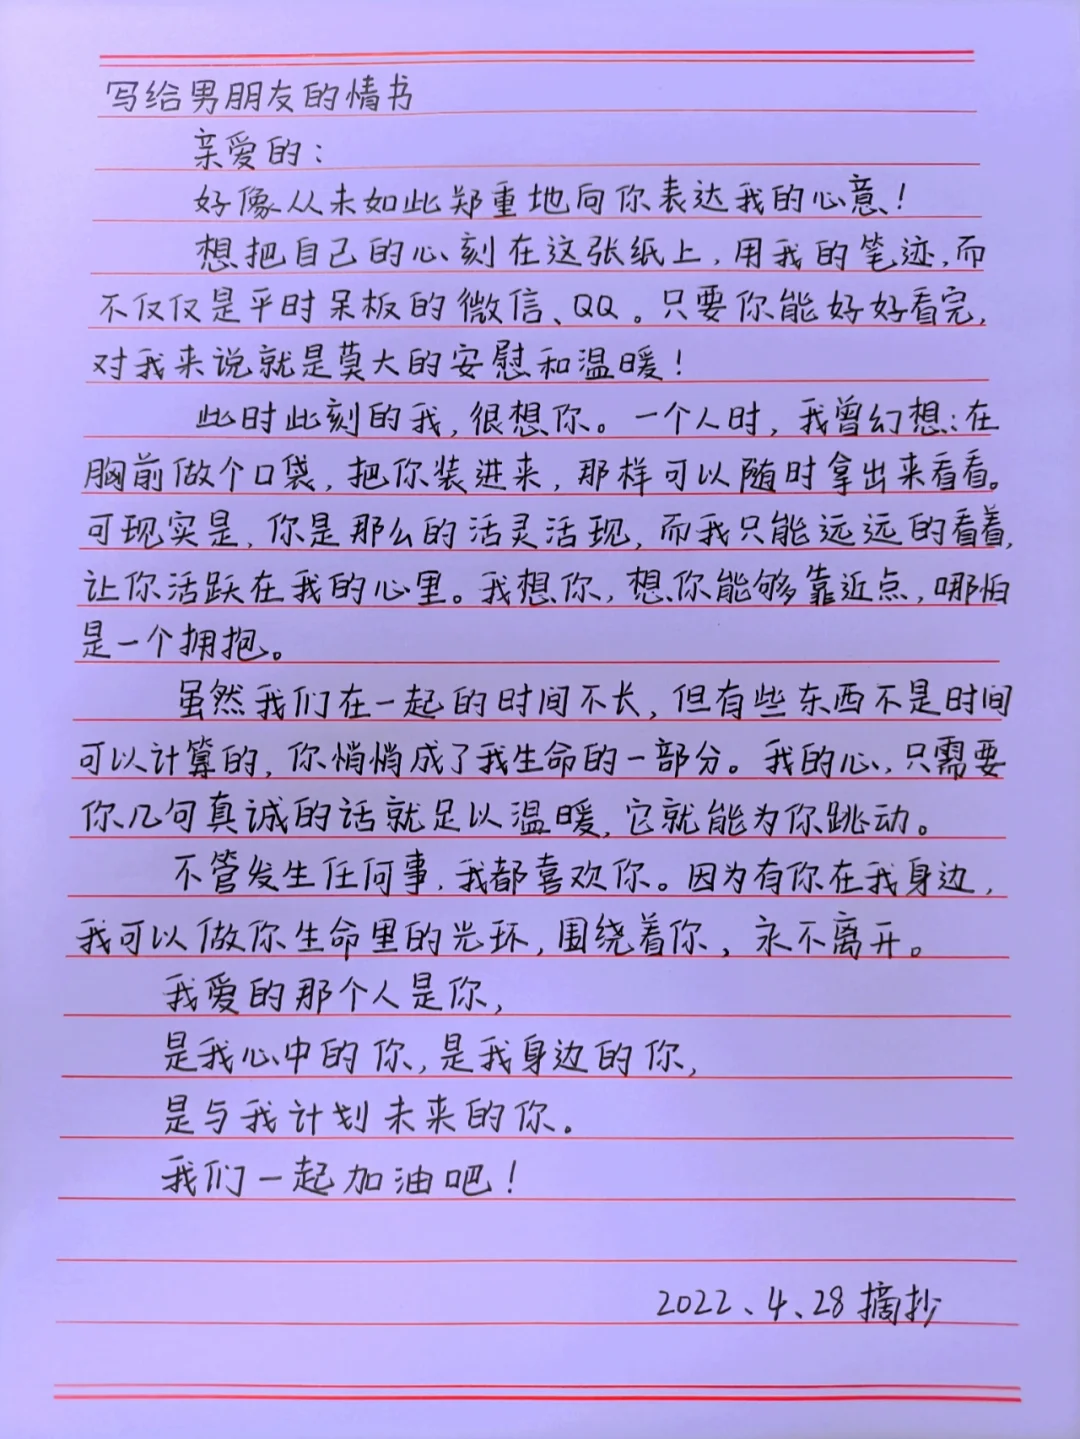 写给男朋友的情书
亲爱的：
好像从未如此郑重地向你表达我的心意！
想把自己的心刻在这张纸上，用我的笔迹，而
不仅仅是平时呆板的微信、QQ。只要你能好好看完，
对我来说就是莫大的安慰和温暖！
此时此刻的我，很想你。一个人时，我曾幻想：在
胸前做个口袋，把你装进来，那样可以随时拿出来看看。
可现实是，你是那么的活灵活现，而我只能远远的看着，
让你活跃在我的心里。我想你，想你能够靠近点，哪怕
是一个拥抱。
虽然我们在一起的时间不长，但有些东西不是时间
可以计算的，你悄悄成了我生命的一部分。我的心，只需要
你几句真诚的话就足以温暖，它就能为你跳动。
不管发生任何事，我都喜欢你。因为有你在我身边，
我可以做你生命里的光环，围绕着你，永不离开。
我爱的那个人是你，
是我心中的你，是我身边的你，
是与我计划未来的你。
我们一起加油吧！
2022、4、28摘抄